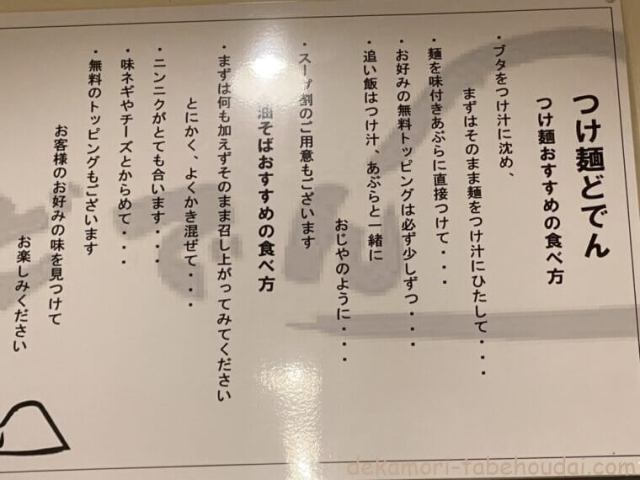 つけ麺どでん
つけ麺おすすめの食べ方
・ブタをつけ汁に沈め、
まずはそのまま麺をつけ汁にひたして・・・
・麺を味付きあぶらに直接つけて・・・
・お好みの無料トッピングは必ず少しずつ・・・
・追い飯はつけ汁、あぶらと一緒に
おじやのように・・・
・スープ割のご用意もございます
油そばおすすめの食べ方
・まずは何も加えずそのまま召し上がってみてください
とにかく、よくかき混ぜて・・・
・ニンニクがとても合います・・・
・味ネギやチーズとからめて・・・
・無料のトッピングもございます
お客様のお好みの味を見つけて
お楽しみください
dekamori-tabehoudai.com